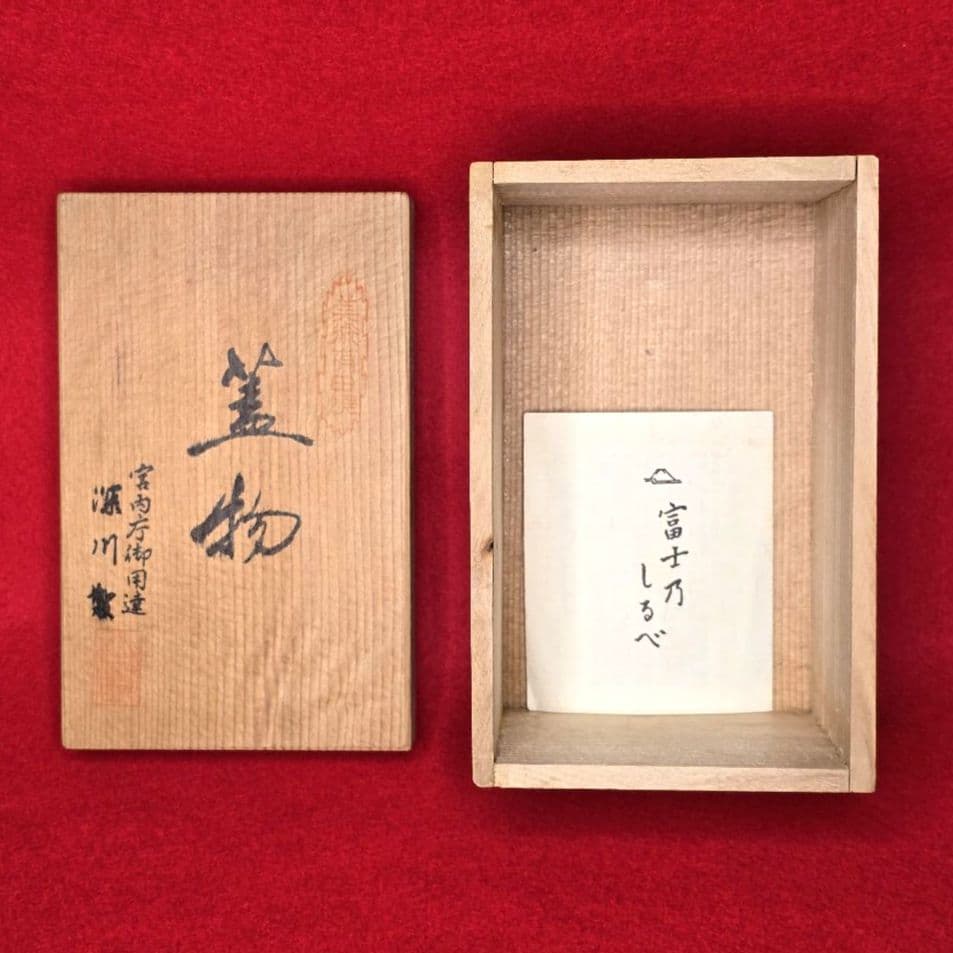 蓋物
宮内庁御用達
深川製
富士乃
しるべ